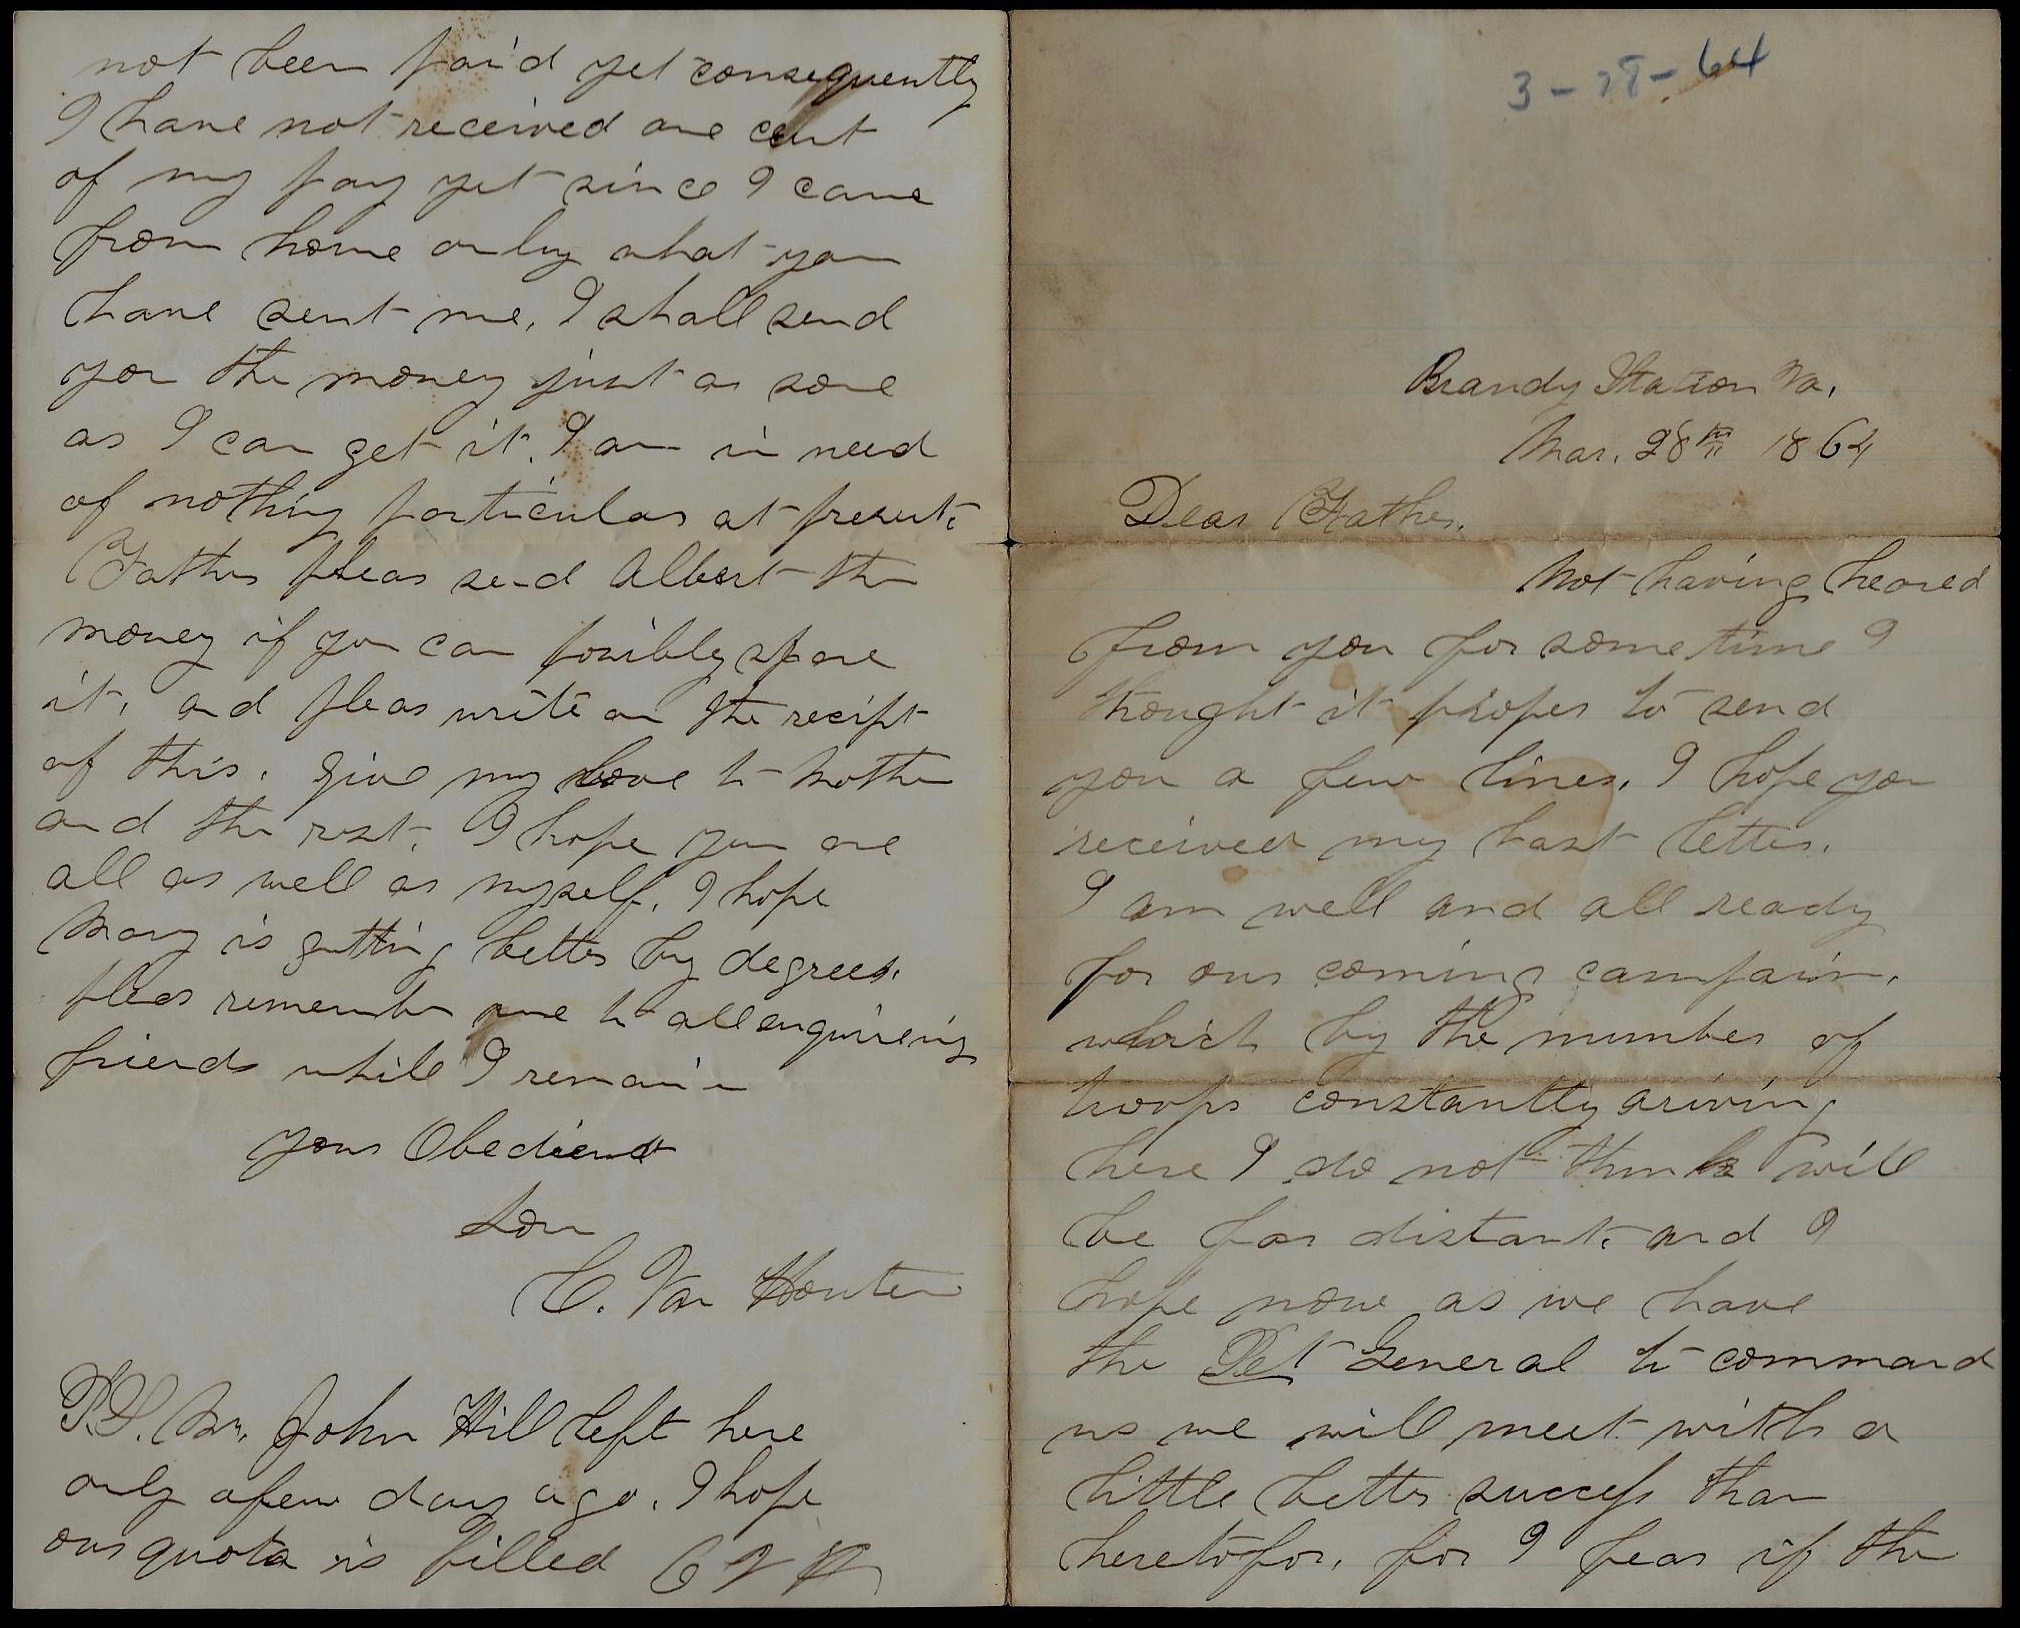 3-28-64
Brandy Station Va.
Mar. 28th 1864
Dear Father.
Not having heared
from you for some time I
thought it proper to send
you a few lines. I hope you
received my last letter.
I am well and all ready
for our coming campain.
which by the number of
troops constantly ariving
here I do not think will
be far distant. and I
hope now as we have
the Pet General to command
us we will meet with a
little better success than
heretofor. for I fear if the
not been paid yet consequently
I have not received one cent
of my pay yet since I came
from home only what you
have sent me. I shall send
you the money just as sone
as I can get it. I am in need
of nothing particular at present.
Father pleas send Albert the
money if you can posibly spare
it. and pleas write on the recipt
of this. give my love to Mother
and the rest. I hope you are
all as well as myself. I hope
Mary is getting better by degrees.
pleas remember me to all enquireing
friends while I remain
your Obedient
Son
C. Van Houten
P.S. Mr. John Hill left here
only a few days ago. I hope
our quota is filled C V H